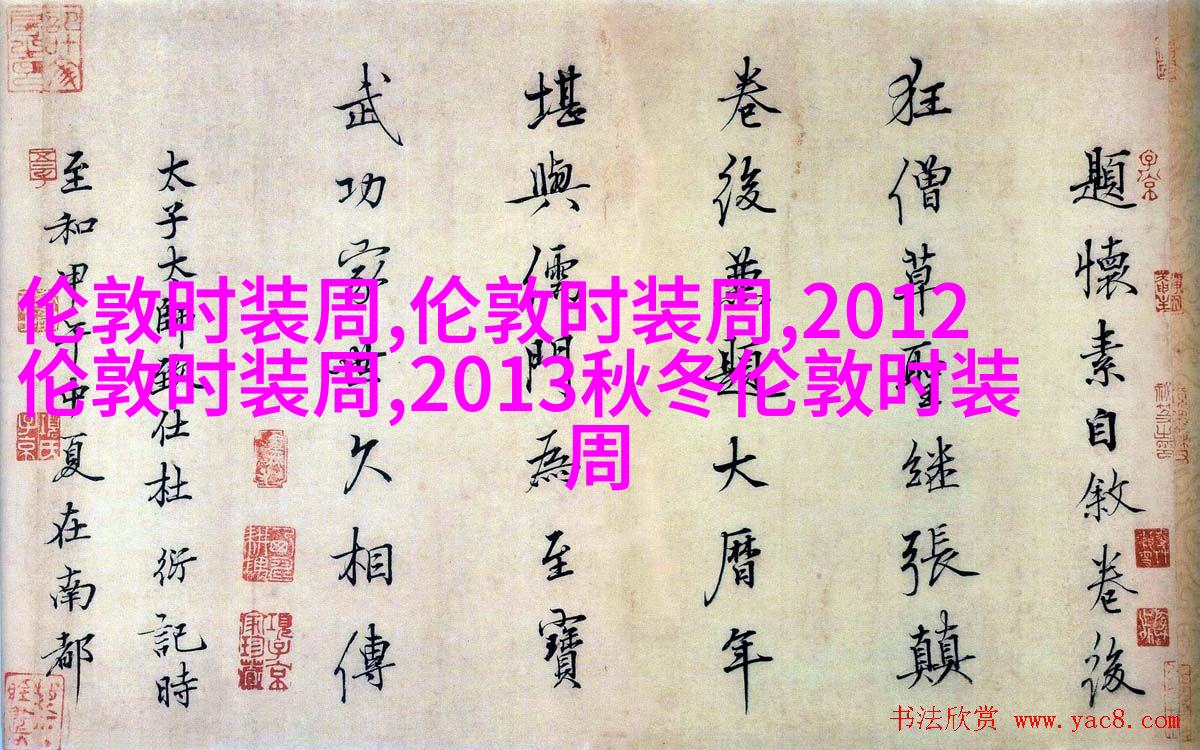 題懷素自敘卷後
狂僧草聖継張顛
卷後兼題大曆年
堪與儒門為至寶
武功家世久相傳
太子太師致仕杜 衍記時
至和甲午中夏在南都
伦敦时装周,伦敦时装周,2012
伦敦时装周,2013秋冬伦敦时装
周
书法欣赏 www.yac8.com